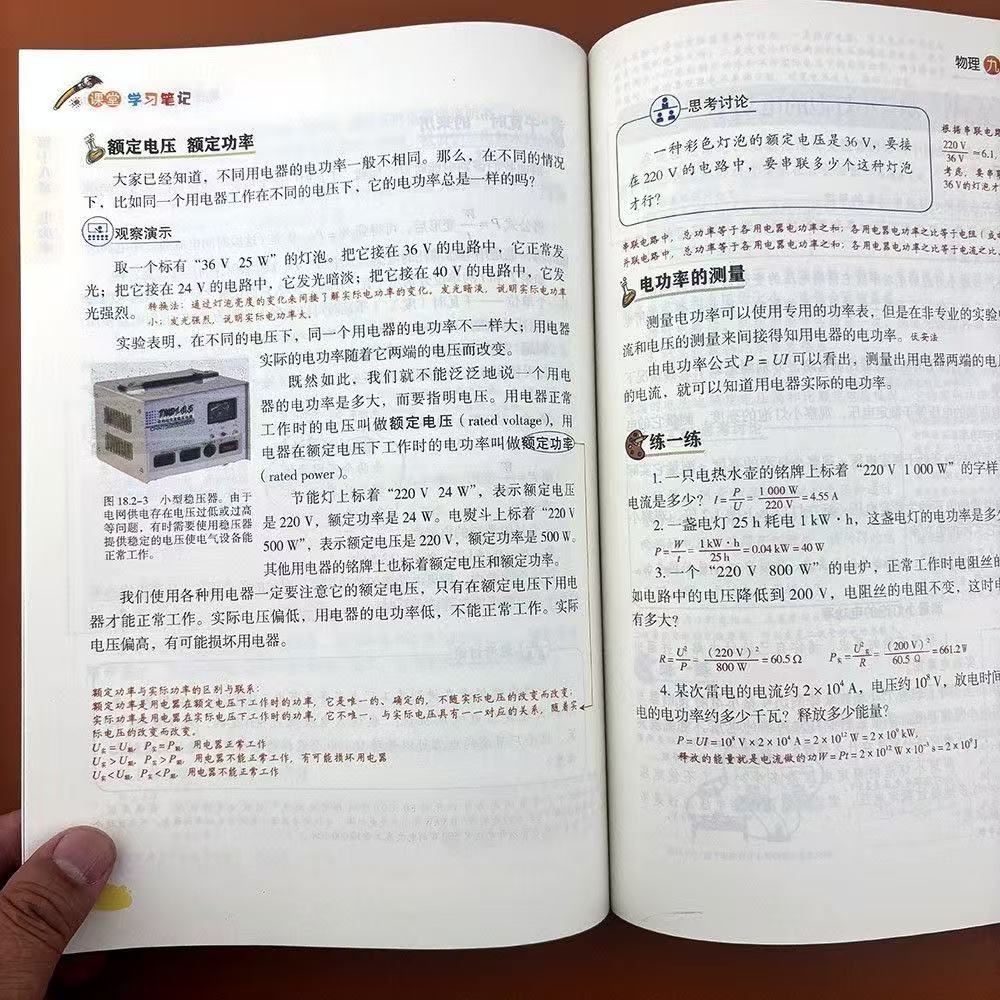 课堂 学习笔记
额定电压 额定功率
大家已经知道，不同用电器的电功率一般不相同。那么，在不同的情况
下，比如同一个用电器工作在不同的电压下，它的电功率总是一样的吗？
观察演示
取一个标有“36 V 25 W”的灯泡。把它接在 36 V 的电路中，它正常发
光；把它接在 24 V 的电路中，它发光暗淡；把它接在 40 V 的电路中，它发
光强烈。
转换法：通过灯泡亮度的变化来间接了解实际电功率的变化。发光暗淡，说明实际电功率
小；发光强烈，说明实际电功率大。
实验表明，在不同的电压下，同一个用电器的电功率不一样大；用电器
实际的电功率随着它两端的电压而改变。
既然如此，我们就不能泛泛地说一个用电
器的电功率是多大，而要指明电压。用电器正常
工作时的电压叫做额定电压（rated voltage），用
电器在额定电压下工作时的电功率叫做额定功率
（rated power）。
图 18.2-3 小型稳压器。由于
电网供电存在电压过低或过高
等问题，有时需要使用稳压器
提供稳定的电压使电气设备能
正常工作。
节能灯上标着“220 V 24 W”，表示额定电压
是 220 V，额定功率是 24 W。电熨斗上标着“220 V
500 W”，表示额定电压是 220 V，额定功率是 500 W。
其他用电器的铭牌上也标着额定电压和额定功率。
我们使用各种用电器一定要注意它的额定电压，只有在额定电压下用电
器才能正常工作。实际电压偏低，用电器的电功率低，不能正常工作。实际
电压偏高，有可能损坏用电器。
额定功率与实际功率的区别与联系：
额定功率是用电器在额定电压下工作时的功率，它是唯一的、确定的，不随实际电压的改变而改变；
实际功率是用电器在实际电压下工作时的功率，它不唯一，与实际电压具有一一对应的关系，随着实
际电压的改变而改变。
U实=U额，P实=P额，用电器正常工作
U实>U额，P实>P额，用电器不能正常工作，有可能损坏用电器
U实<U额，P实<P额，用电器不能正常工作
物理 九
思考讨论
一种彩色灯泡的额定电压是 36 V，要接
在 220 V 的电路中，要串联多少个这种灯泡
才行？
根据串联电路
220 V/36 V = 6.1，
考虑，要串联
36 V的灯泡才
串联电路中，总功率等于各用电器电功率之和；各用电器电功率之比等于电阻（或
并联电路中，总功率等于各用电器电功率之和；各用电器电功率之比等于电流之比。
电功率的测量
测量电功率可以使用专用的功率表，但是在非专业的实验
流和电压的测量来间接得知用电器的电功率。 伏安法
由电功率公式 P = UI 可以看出，测量出用电器两端的电
的电流，就可以知道用电器实际的电功率。
练一练
1. 一只电热水壶的铭牌上标着“220 V 1 000 W”的字样
电流是多少？ I = P/U = 1 000 W/220 V = 4.55 A
2. 一盏电灯 25 h 耗电 1 kW · h，这盏电灯的电功率是多
P = W/t = 1 kW · h/25 h = 0.04 kW = 40 W
3. 一个“220 V 800 W”的电炉，正常工作时电阻丝的
如电路中的电压降低到 200 V，电阻丝的电阻不变，这时
有多大？
R = U²/P = (220 V)²/800 W = 60.5 Ω P实 = U²实/R = (200 V)²/60.5 Ω = 661.2 W
4. 某次雷电的电流约 2 × 10⁴ A，电压约 10⁸ V，放电时间
电的电功率约多少千瓦？释放多少能量？
P = UI = 10⁸ V × 2 × 10⁴ A = 2 × 10¹² W = 2 × 10⁹ kW，
释放的能量就是电流做的功W = Pt = 2 × 10¹² W × 10⁻³ s = 2 × 10⁹ J